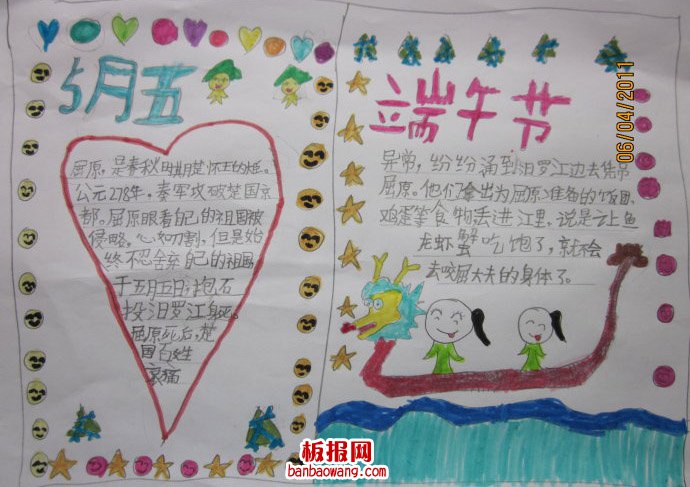 5月五
屈原,是春秋时期楚怀王的大臣。
公元278年,秦军攻破楚国京
都。屈原眼看自己的祖国被
侵略,心如刀割,但是始
终不忍舍弃自己的祖国
于五月五日,抱石
投汨罗江身死。
屈原死后,楚
国百姓
哀痛
端午节
异常,纷纷涌到汨罗江边去凭吊
屈原。他们拿出为屈原准备的饭团、
鸡蛋等食物丢进江里,说是让鱼
龙虾蟹吃饱了,就不会
去咬屈大夫的身体了。
06/04/2011
板报网
banbaowang.com